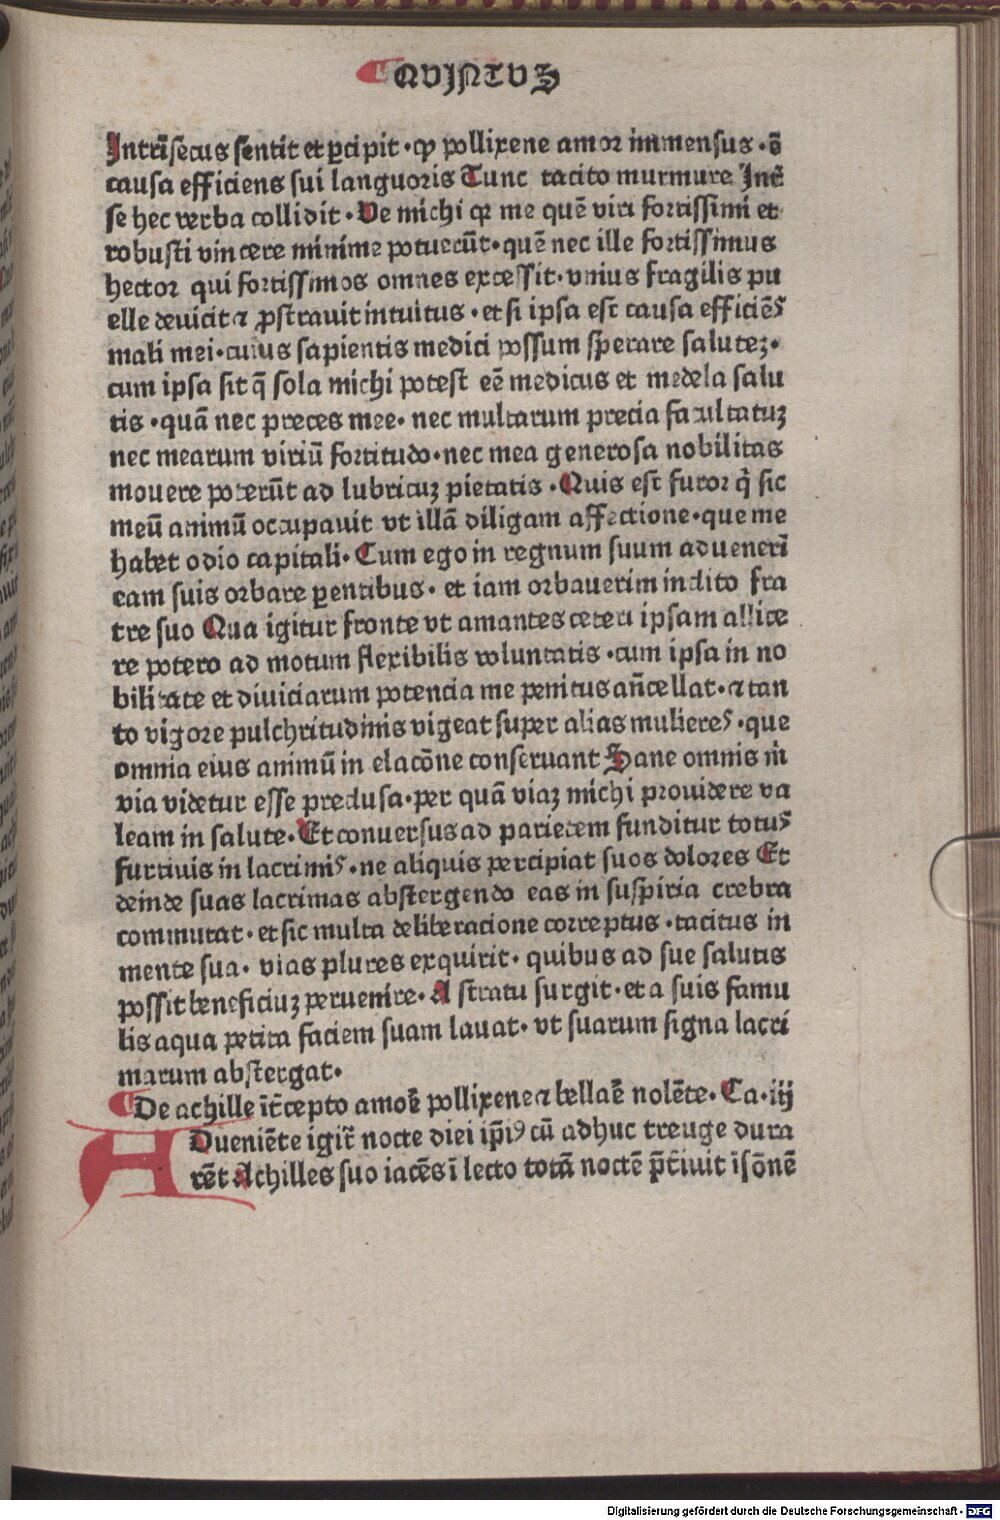 QVINTVS
Intrīsecus sentit et ꝑcipit · ꝙ pollixene amor immensus · ē
causa efficiens sui languoris Tunc tacito murmure Int̄
se hec verba collidit · Ve michi qꝛ me quē viri fortissimi et
robusti vincere minime potuerūt · quē nec ille fortissimus
hector qui fortissimos omnes excessit · vnius fragilis pu
elle deuicit ⁊ ꝓstrauit intuitus · et si ipsa est causa efficiēs
mali mei · cuius sapientis medici possum sperare saluteꝫ ·
cum ipsa sit q̄ sola michi potest eē medicus et medela salu
tis · quā nec preces mee · nec multarum precia facultatuꝫ
nec mearum viriū fortitudo · nec mea generosa nobilitas
mouere poterūt ad lubricuꝫ pietatis · Quis est furor q̇ sic
meū animū occupauit vt illā diligam affectione · que me
habet odio capitali · Cum ego in regnum suum aduenerī
eam suis orbare ꝑentibus · et iam orbauerim inclito fra
tre suo Qua igitur fronte vt amantes ceteri ipsam allice
re potero ad motum flexibilis voluntatis · cum ipsa in no
bilitate et diuiciarum potencia me penitus añcellat · ⁊ tan
to vigore pulchritudinis vigeat super alias mulieres · que
omnia eius animū in elacōne conseruant Sane omnis m̄
via videtur esse preclusa · per quā viaꝫ michi prouidere va
leam in salute · Et conuersus ad parietem funditur totus
furtiuis in lacrimis · ne aliquis percipiat suos dolores Et
deinde suas lacrimas abstergendo eas in suspiria crebra
commutat · et sic multa deliberacione correptus · tacitus in
mente sua · vias plures exquirit · quibus ad sue salutis
possit beneficiuꝫ peruenire · A stratu surgit · et a suis famu
lis aqua petita faciem suam lauat · vt suarum signa lacri
marum abstergat ·
De achille īt̄cepto amoē pollixene ⁊ bellaē nolēte · Ca · iij
ADueniēte igit̄ nocte diei ip̄iꝰ cū adhuc treuge dura
rēt Achilles suo iacēs ī lecto totā noctē p̄tiuit īsōnē
Digitalisierung gefördert durch die Deutsche Forschungsgemeinschaft · DFG